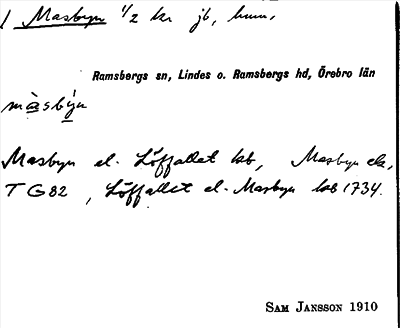 / Masbyn 1/2 kr jb, hmn.
Ramsbergs sn, Lindes o. Ramsbergs hd, Örebro län
màsby̱n
Masbyn el. Löffallet lsb, Masbyn ek,
T G82, Löffallet el. Masbyn lsb 1734.
SAM JANSSON 1910